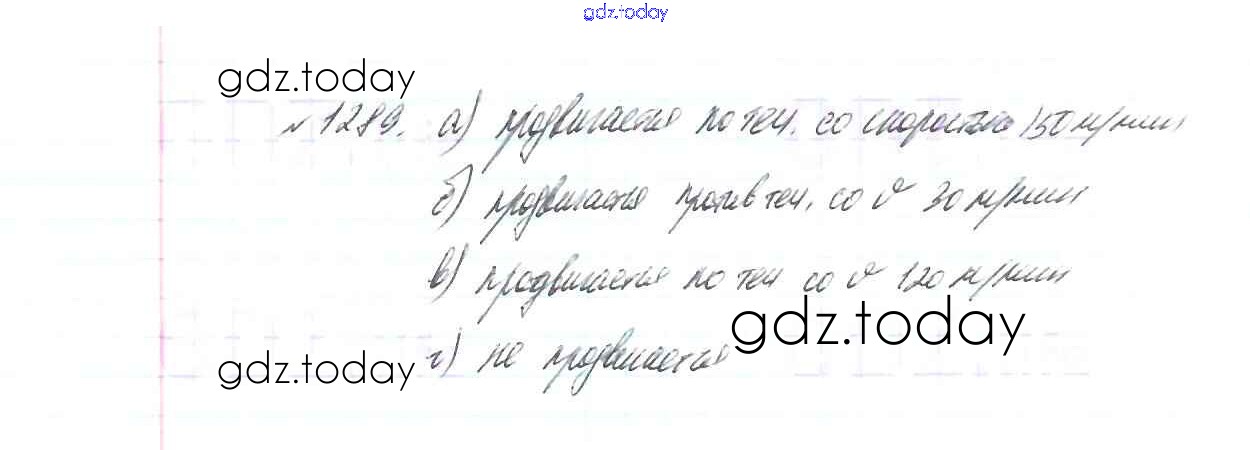 gdz.today
gdz.today
№1289. а) продвигается по теч. со скоростью 150 м/мин
б) продвигается против теч. со v 30 м/мин
в) продвигается по теч со v 120 м/мин
gdz.today
г) не продвигается
gdz.today